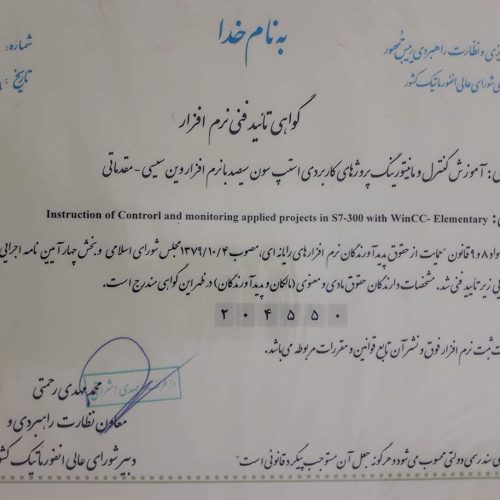 به نام خدا
شماره:
یزی و نظارت راهبردی رییس جمهور
تاریخ:
شورای عالی انفورماتیک کشور
گواهی تائید فنی نرم افزار
آموزش کنترل و مانیتورینگ پروژه‌های کاربردی استپ سون سیصد با نرم افزار وین سی‌سی - مقدماتی
Instruction of Controrl and monitoring applied projects in S7-300 with WinCC- Elementary
مواد ۸ و ۹ قانون حمایت از حقوق پدیدآورندگان نرم افزارهای رایانه‌ای، مصوب ۱۳۷۹/۱۰/۴ مجلس شورای اسلامی و بخش چهار آیین نامه اجرایی
زیر تأیید فنی شد. مشخصات دارندگان حقوق مادی و معنوی (مالکان و پدیدآورندگان) در ظهر این گواهی مندرج است.
۲ ۰ ۴ ۵ ۵ ۰
ثبت نرم افزار فوق و نشر آن تابع قوانین و مقررات مربوطه می‌باشد.
محمد مهدی رحمتی
معاون نظارت راهبردی و
دبیر شورای عالی انفورماتیک کشور
سندری دولتی محسوب می‌شود و هرگونه جعل آن مستوجب پیگرد قانونی است"